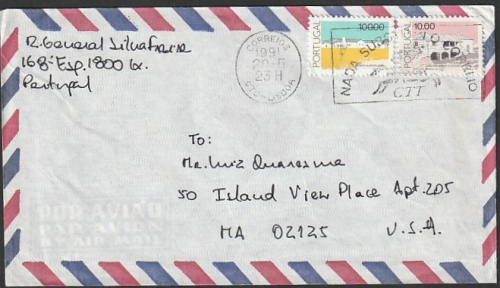 R. General Silva Freire
168-Esp. 1800 Lx.
Portugal
CORREIOS
1991
20-5
23H
LISBOA
PORTUGAL
100.00
PORTUGAL
10.00
NADA
CTT
To:
Mr. Luiz Quaresma
50 Island View Place Apt. 205
MA 02125 U.S.A.
POR AVIÃO
PAR AVION
BY AIR MAIL